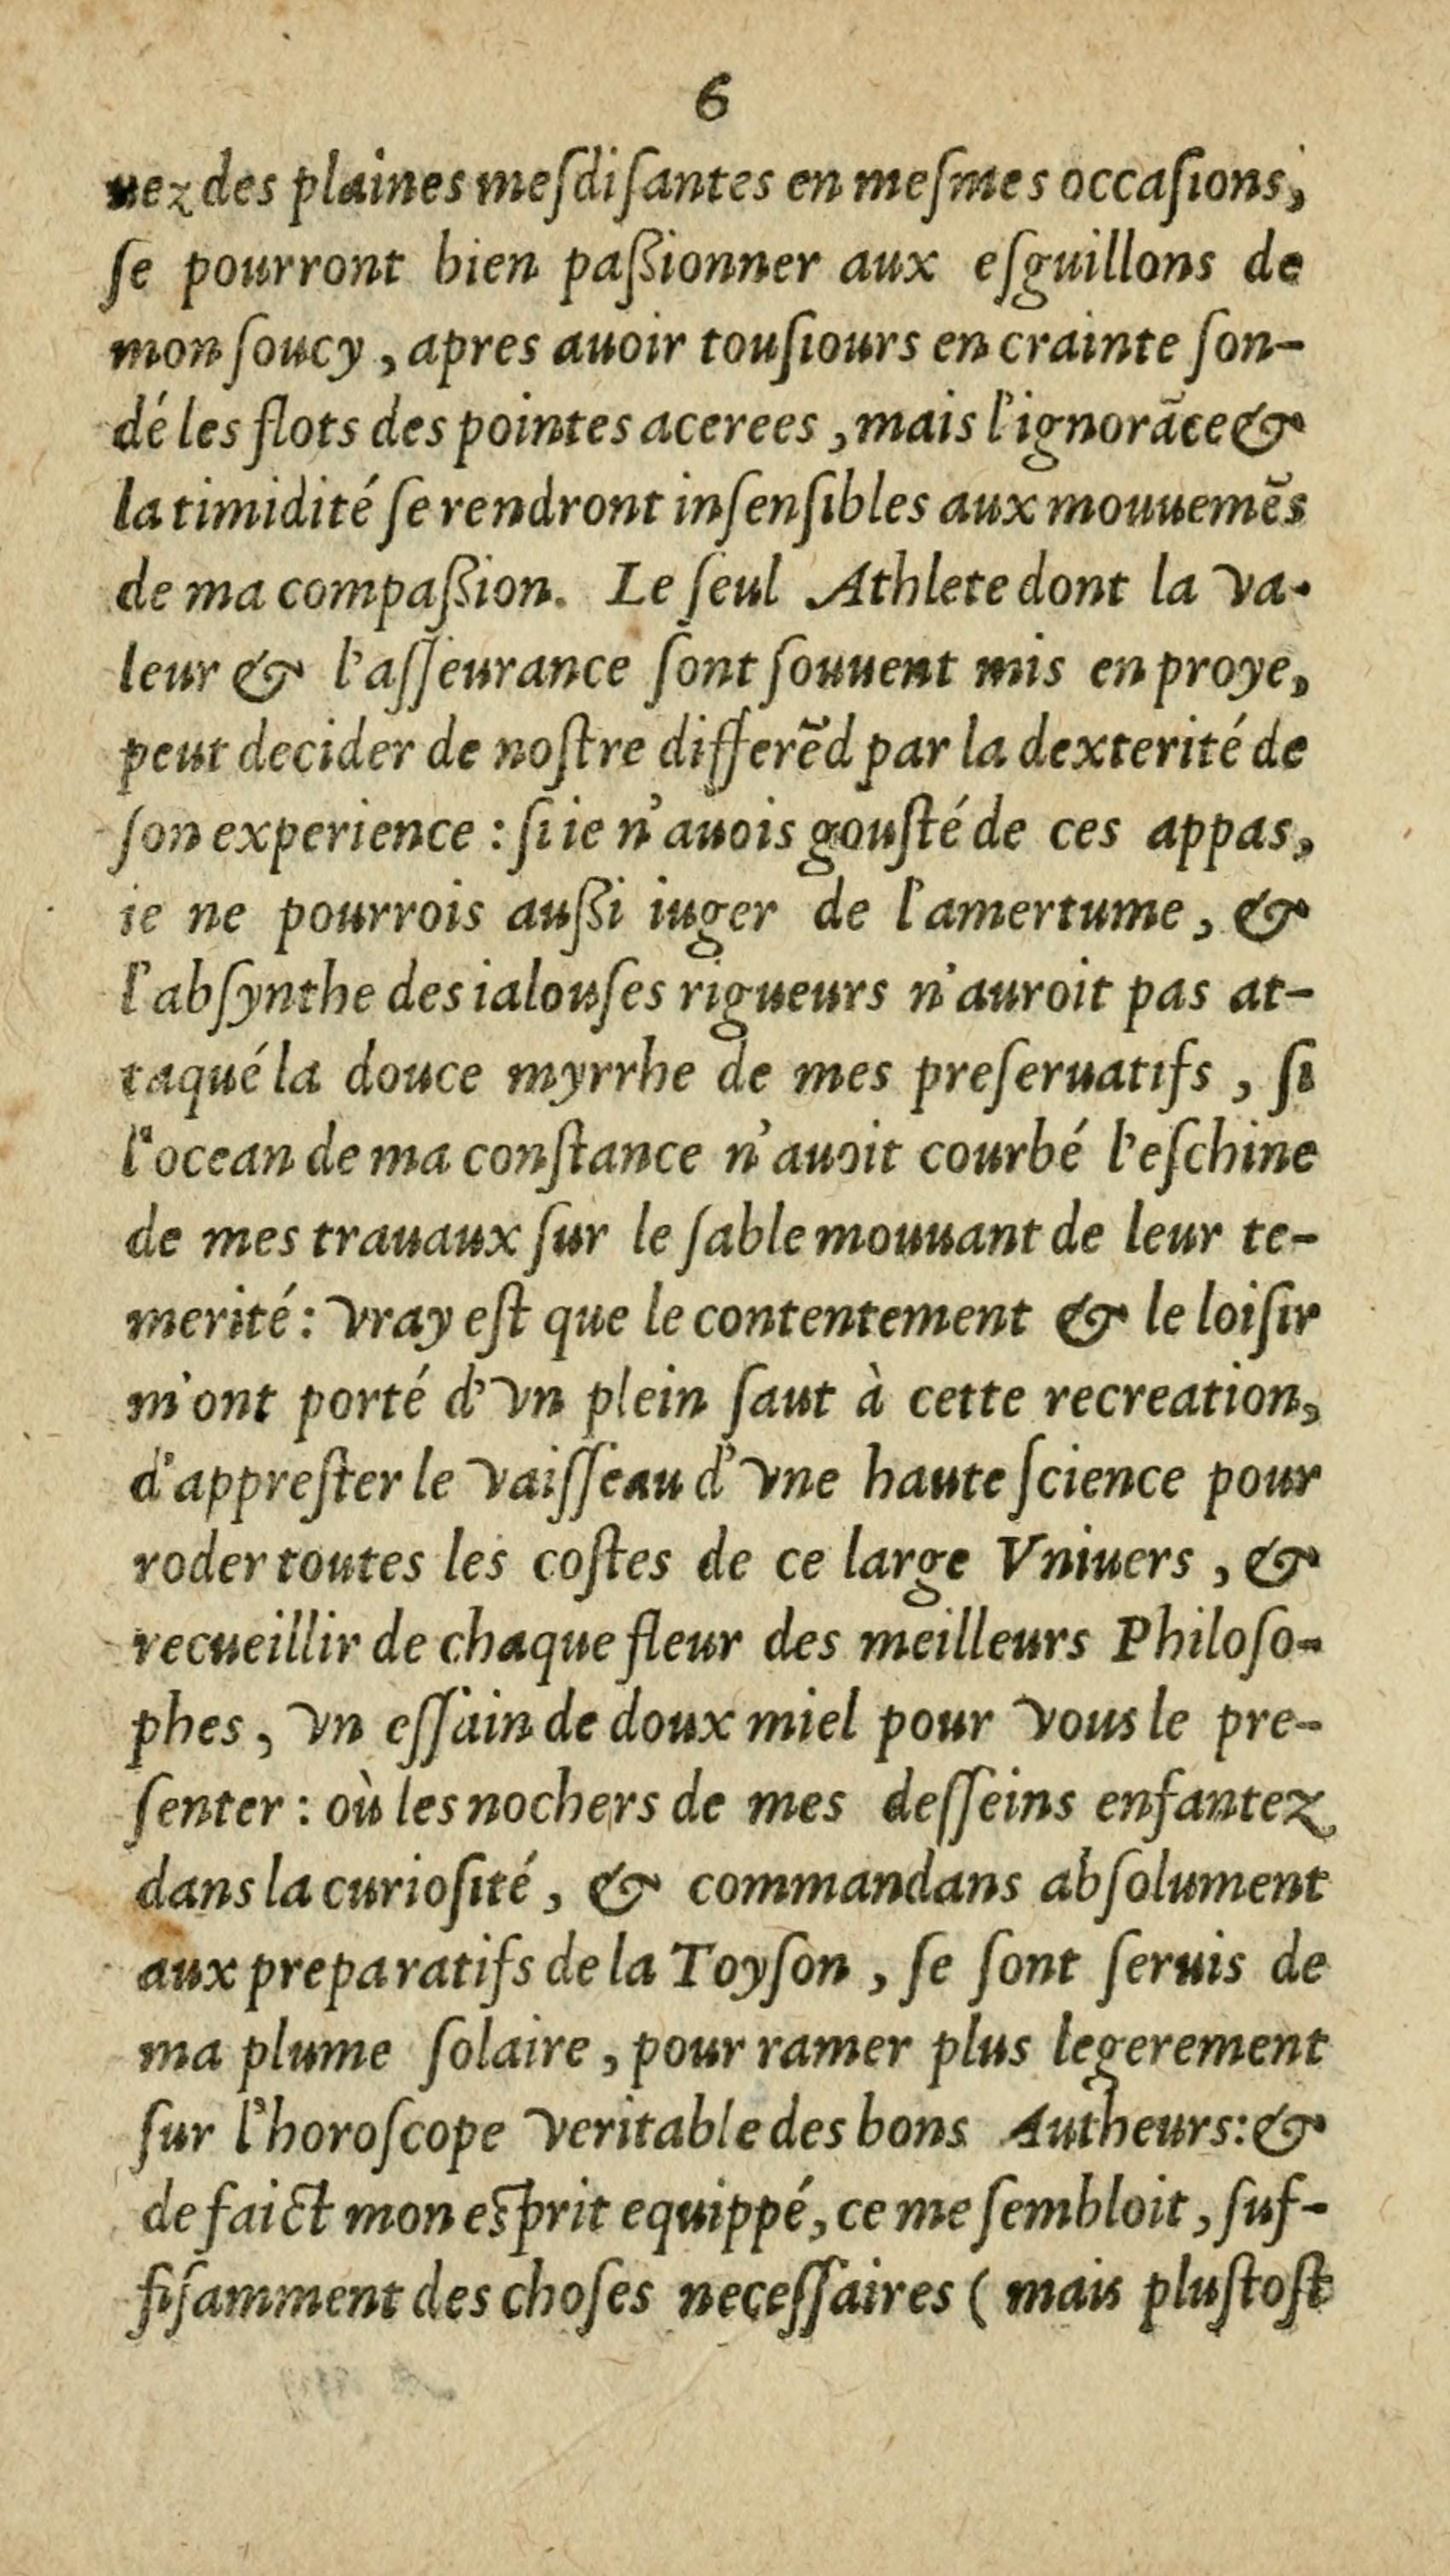 6
uez des plaines mesdiſantes en meſmes occaſions,
ſe pourront bien paſsionner aux eſguillons de
mon ſoucy, apres auoir touſiours en crainte ſon-
dé les flots des pointes acerees, mais l'ignorāce &
la timidité ſe rendront inſenſibles aux mouuemēs
de ma compaſsion. Le ſeul Athlete dont la va-
leur & l'aſſeurance ſont ſouuent mis en proye,
peut decider de noſtre differēd par la dexterité de
ſon experience : ſi ie n'auois gouſté de ces appas,
ie ne pourrois auſsi iuger de l'amertume, &
l'abſynthe des ialouſes rigueurs n'auroit pas at-
taqué la douce myrrhe de mes preſeruatifs, ſi
l'ocean de ma conſtance n'auoit courbé l'eſchine
de mes trauaux ſur le ſable mouuant de leur te-
merité : vray eſt que le contentement & le loiſir
m'ont porté d'vn plein ſaut à cette recreation,
d'appreſter le vaiſſeau d'vne haute ſcience pour
roder toutes les coſtes de ce large Vniuers, &
recueillir de chaque fleur des meilleurs Philoſo-
phes, vn eſſain de doux miel pour vous le pre-
ſenter : où les nochers de mes deſſeins enfantez
dans la curioſité, & commandans abſolument
aux preparatifs de la Toyſon, ſe ſont ſeruis de
ma plume ſolaire, pour ramer plus legerement
ſur l'horoſcope veritable des bons Autheurs: &
de faict mon eſprit equippé, ce me ſembloit, ſuf-
fiſamment des choſes neceſſaires ( mais pluſtoſt